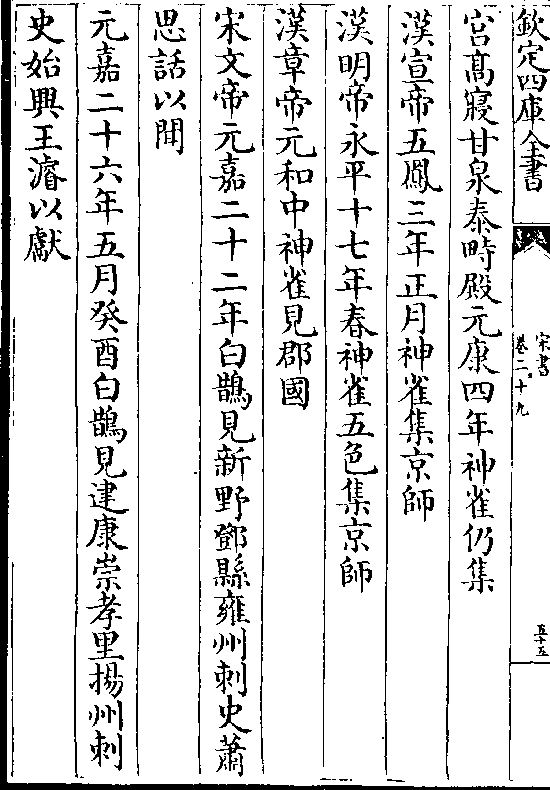 欽定四庫全書
宋書
卷二十九
五十五
宫髙寢甘泉泰畤殿元康四年神雀仍集
漢宣帝五鳳三年正月神雀集京師
漢明帝永平十七年春神雀五色集京師
漢章帝元和中神雀見郡國
宋文帝元嘉二十二年白鵲見新野鄧縣雍州刺史蕭
思話以聞
元嘉二十六年五月癸酉白鵲見建康崇孝里揚州刺
史始興王濬以獻